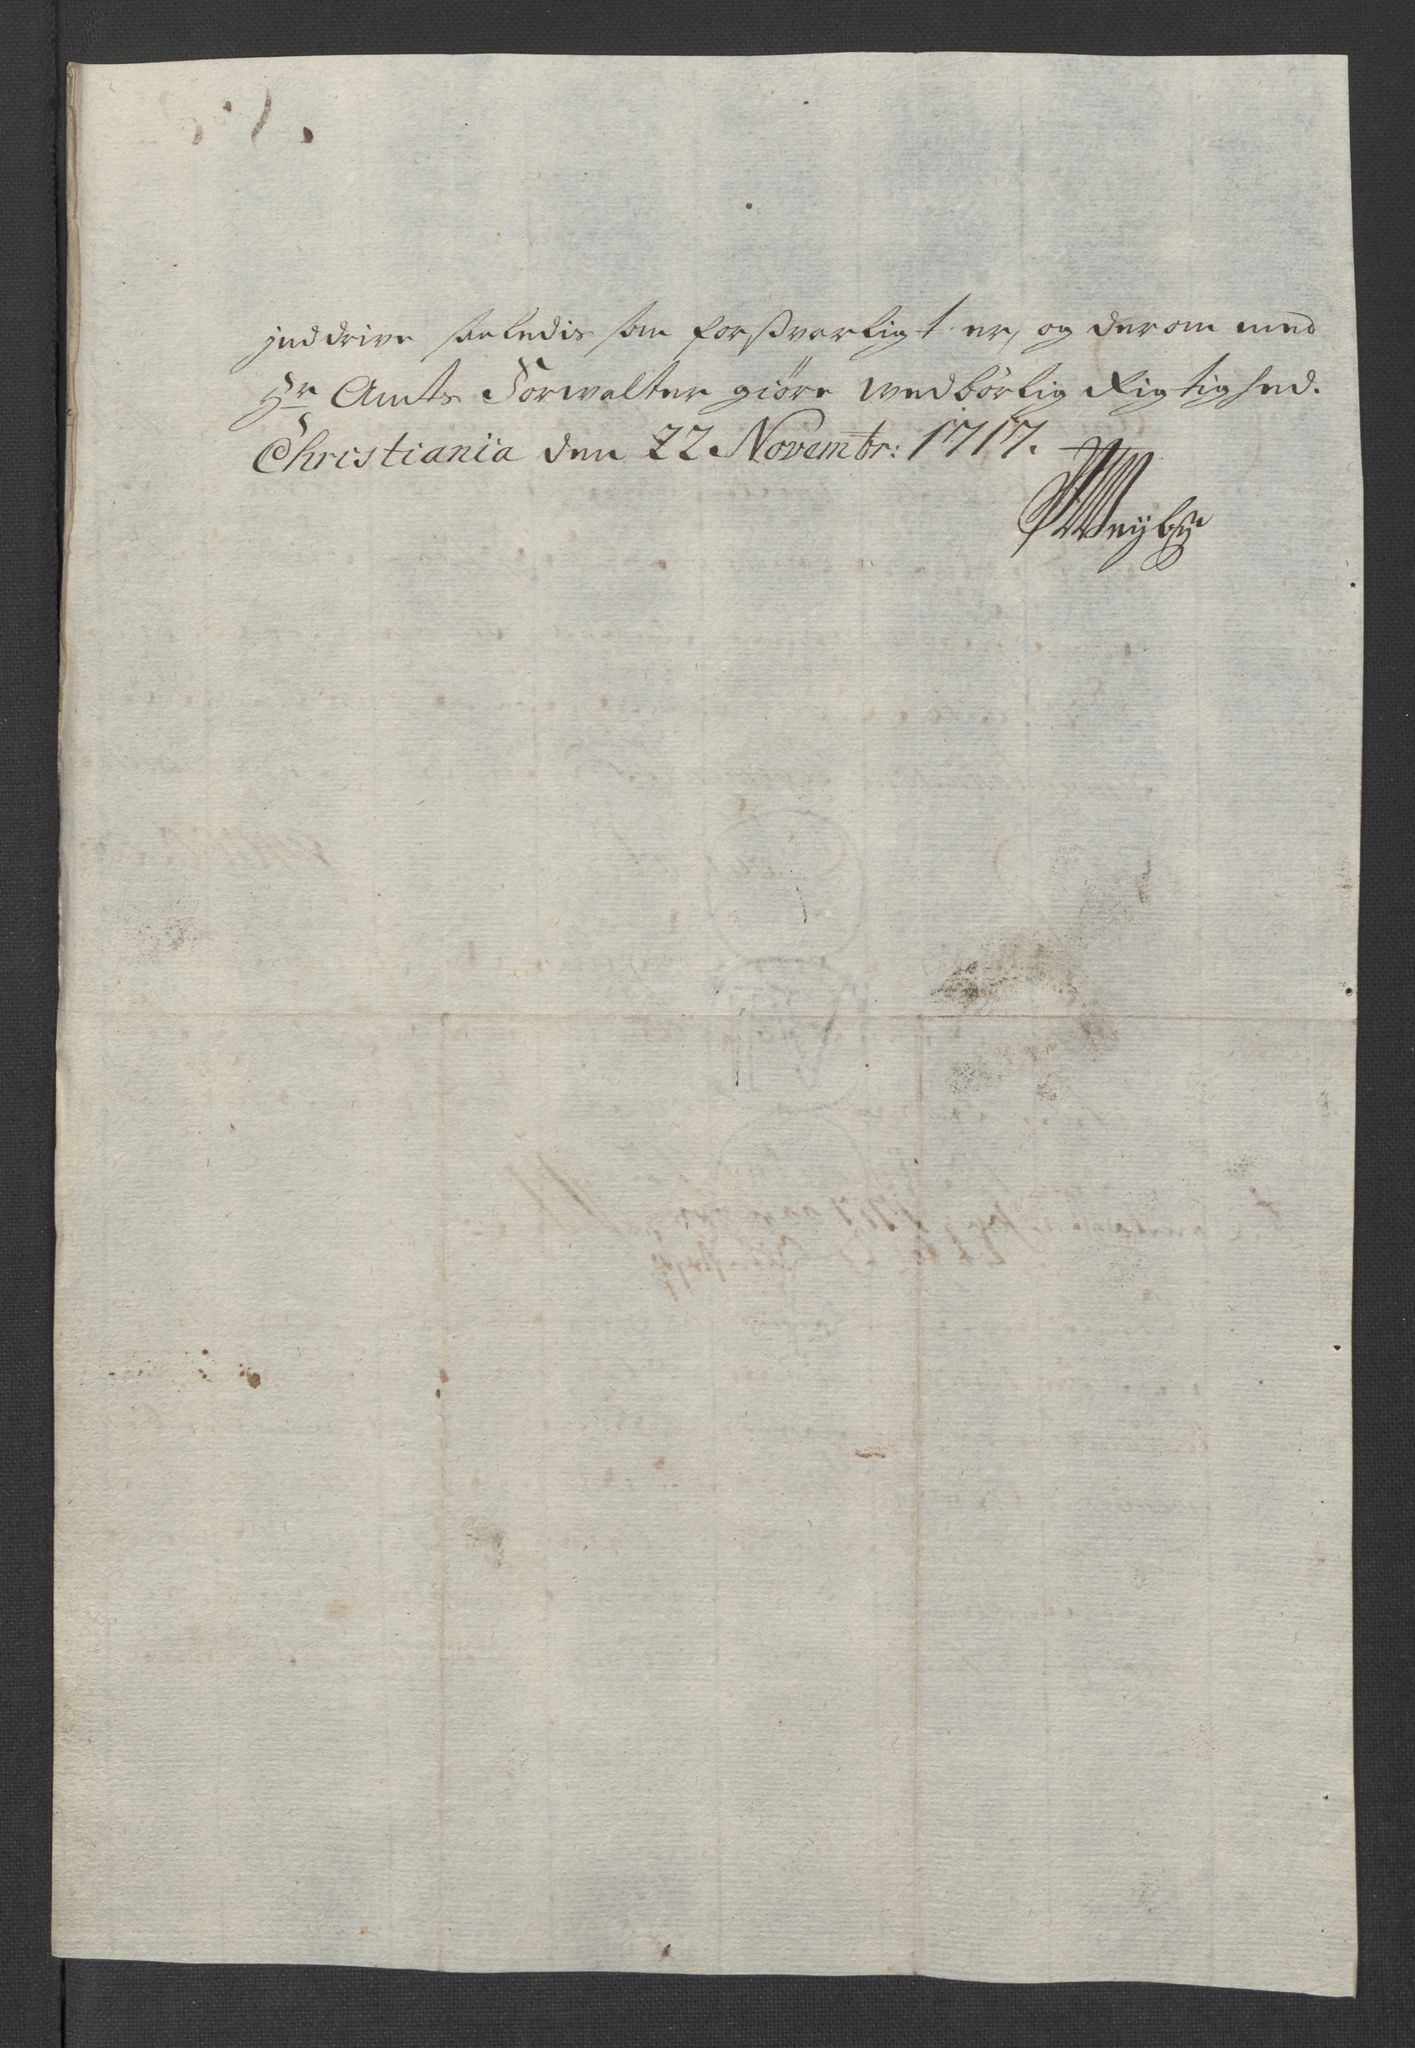 jnddrive saaledis som forsvarligt er, og derom med
Hr Amts Forwalter giöre wedbörlig Rigtighed.
Christiania den 22 Novembr: 1717.